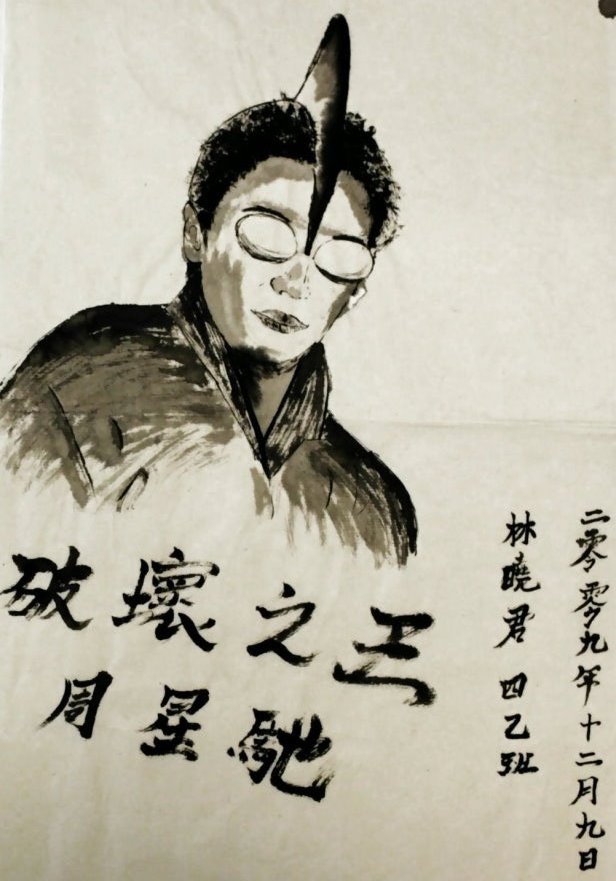 破壞之王
周星馳
二零零九年十二月九日
林曉君 四乙班